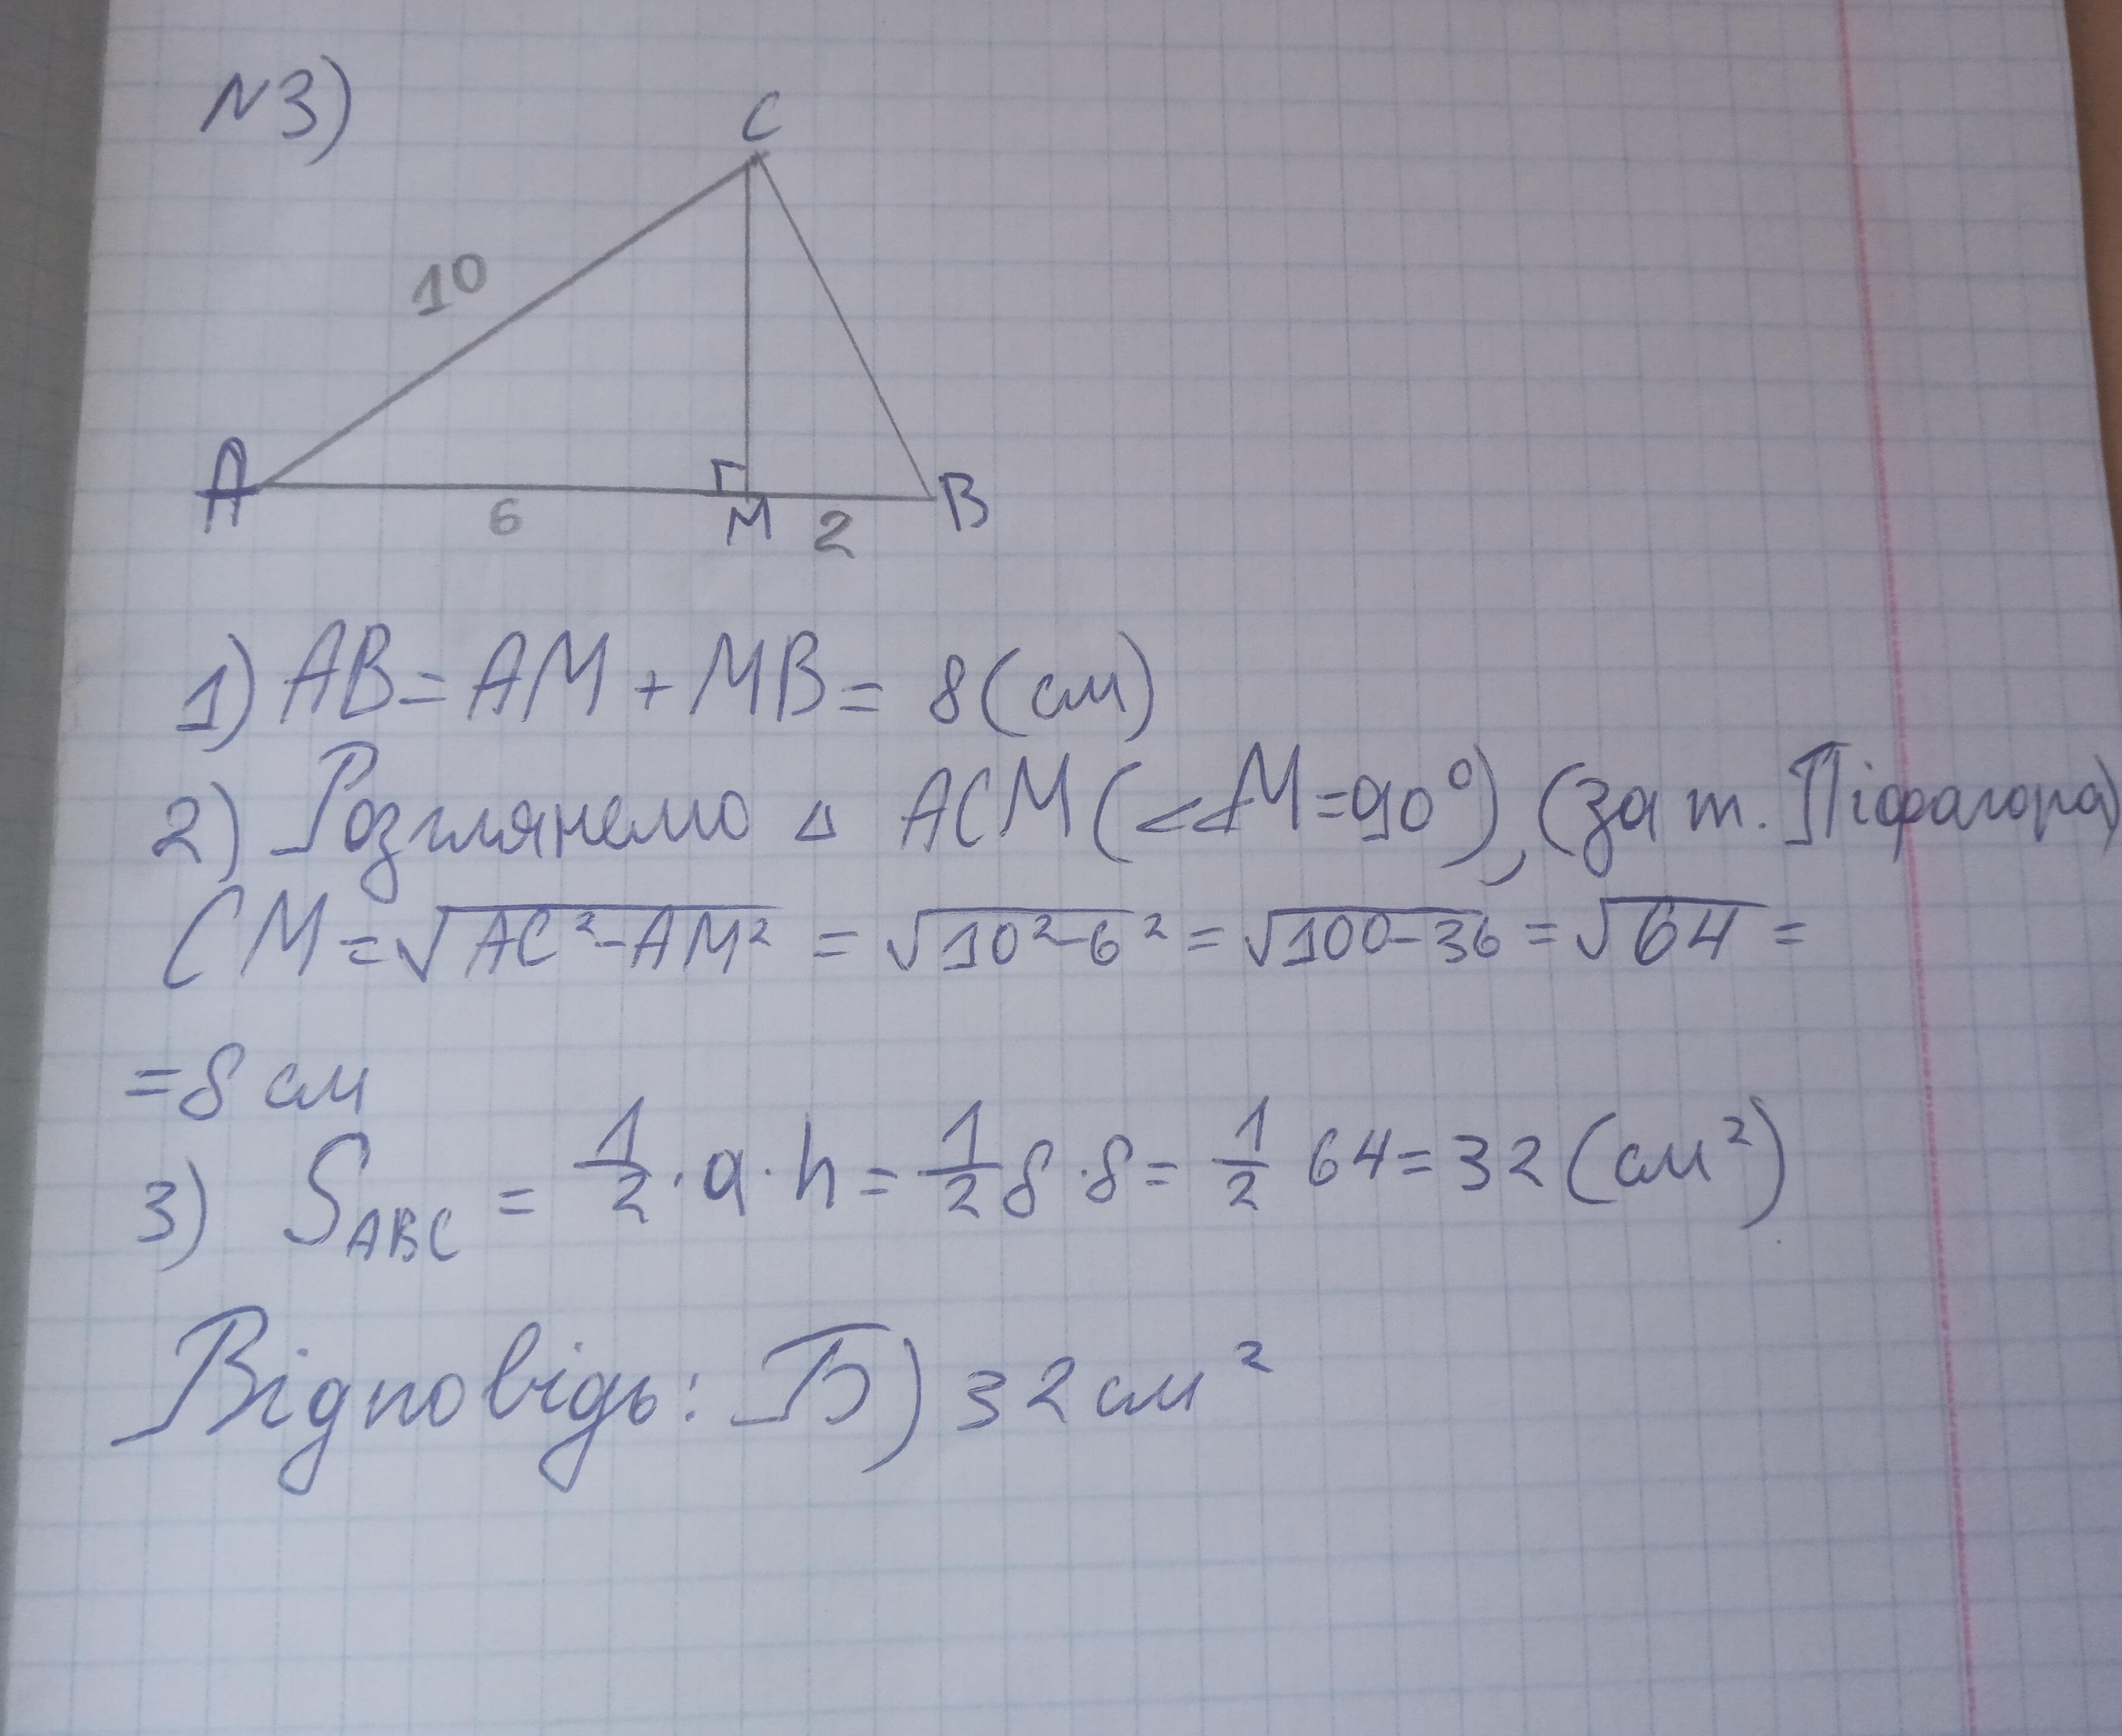 N3)
C
10
A
6
M
2
B
1) AB = AM + MB = 8 (см)
2) Розглянемо △ ACM (∠∠M=90°), (за т. Піфагора)
CM = √AC²-AM² = √10²-6² = √100-36 = √64 =
= 8 см
3) S ABC = 1/2 · a · h = 1/2 8 · 8 = 1/2 64 = 32 (см²)
Відповідь: Б) 32 см²